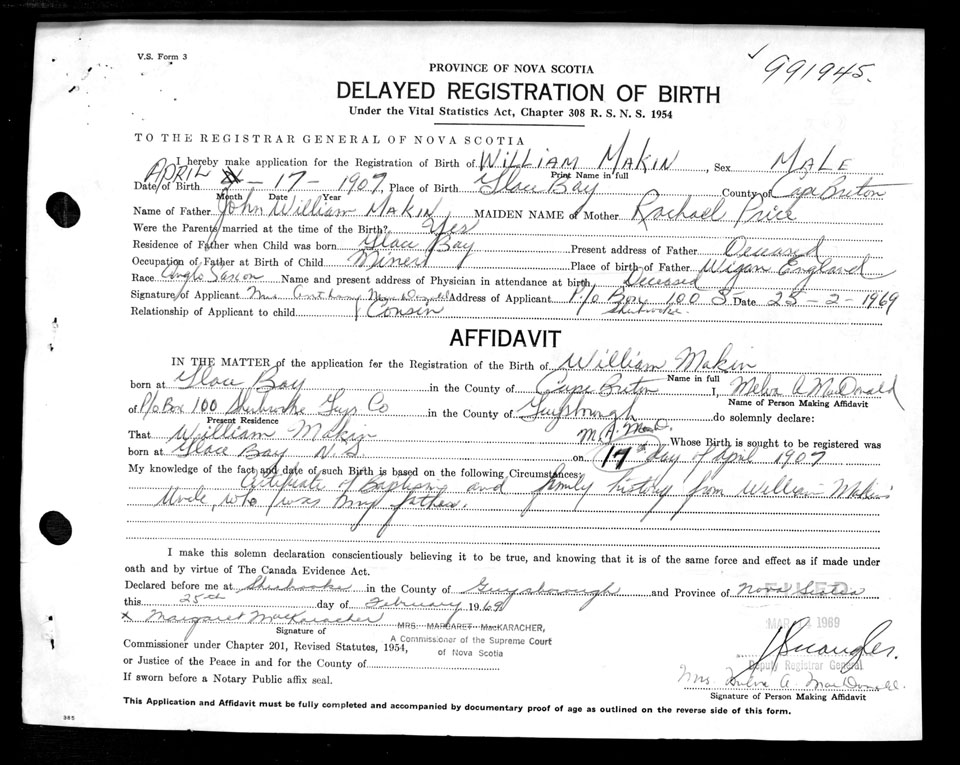 V.S. Form 3
991945.
PROVINCE OF NOVA SCOTIA
DELAYED REGISTRATION OF BIRTH
Under the Vital Statistics Act, Chapter 308 R. S. N. S. 1954
TO THE REGISTRAR GENERAL OF NOVA SCOTIA
I hereby make application for the Registration of Birth of WILLIAM MAKIN, Sex MALE
Print Name in full
Date of Birth APRIL - 17 - 1907, Place of Birth Glace Bay County of Cape Breton
Month Date Year
Name of Father John William MAKIN MAIDEN NAME of Mother Rachael Price
Were the Parents married at the time of the Birth? Yes
Residence of Father when Child was born Glace Bay Present address of Father Deceased
Occupation of Father at Birth of Child Miner Place of birth of Father Wigan England
Race Anglo Saxon Name and present address of Physician in attendance at birth Deceased
Signature of Applicant Mrs Anthony MacDonald Address of Applicant P/o Box 100 S. Date 25-2-1969
Sherbrooke.
Relationship of Applicant to child Cousin
AFFIDAVIT
IN THE MATTER of the application for the Registration of the Birth of William Makin
Name in full
born at Glace Bay in the County of Cape Breton I, Melva A MacDonald
Name of Person Making Affidavit
of P/o Box 100 Sherbrooke Guys Co in the County of Guysborough do solemnly declare:
Present Residence
That William Makin M.A. MacD. Whose Birth is sought to be registered was
born at Glace Bay N.S. on 17th day of April 1907
My knowledge of the fact and date of such Birth is based on the following Circumstances:
Certificate of Baptism and family history from William Makin's
Uncle, who was my father.
I make this solemn declaration conscientiously believing it to be true, and knowing that it is of the same force and effect as if made under
oath and by virtue of The Canada Evidence Act.
Declared before me at Sherbrooke in the County of Guysborough and Province of Nova Scotia
FILED
this 25th day of February 1969
MAR 1969
x Margaret MacKaracher
Signature of
MRS. MARGARET MacKARACHER,
A Commissioner of the Supreme Court
of Nova Scotia
Commissioner under Chapter 201, Revised Statutes, 1954,
or Justice of the Peace in and for the County of
Deputy Registrar General
If sworn before a Notary Public affix seal.
Mrs. Melva A. MacDonald.
Signature of Person Making Affidavit
This Application and Affidavit must be fully completed and accompanied by documentary proof of age as outlined on the reverse side of this form.
385